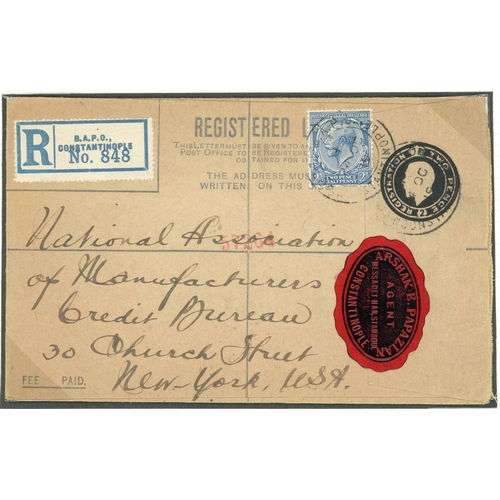 R
B.A.P.O.,
CONSTANTINOPLE
No. 848
REGISTERED L
THIS LETTER MUST BE GIVEN TO AN
POST OFFICE TO BE REGISTERED,
OBTAINED FOR IT
THE ADDRESS MUST
WRITTEN ON THIS
TWO PENCE
HALFPENNY
REGISTRATION TWO PENCE
National Association
of Manufacturers
Credit Bureau
30 Church Street
New-York, USA.
ARSHAK B. PAPAZIAN
AGENT
MESSADET HAN, STAMBOUL
CONSTANTINOPLE
FEE PAID.